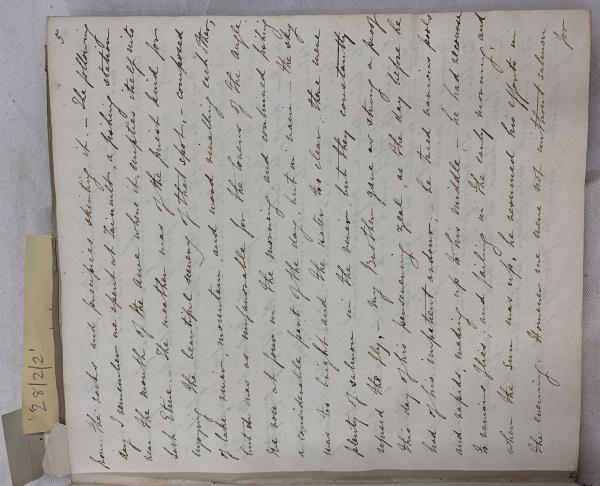 5.
from the rocks and precipices skirting it. — The following
day I remember we spent at Taimuilt a fishing station
near the mouth of the awe where it empties itself into
Loch Etive. — The weather was of the finest kind for
enjoying the beautiful scenery of that spot, — composed
of lake, river, mountain and wood rivalling each other,
but it was as unfavourable for the lovers of the angle.
He rose at four in the morning, and continued fishing
a considerable part of the day, but in vain — the sky
was too bright and the water too clear. there were
plenty of salmon in the river but they constantly
refused the fly, — my Brother gave as strong a proof
this day of his persevering zeal as the day before he
had of his impatient ardour; he tried various pools
and rapids, wading up to his middle — he had recourse
to various flies, and failing in the early morning, and
when the sun was up, he resumed his efforts in
the evening. However we were not without salmon
for
28/2/2'